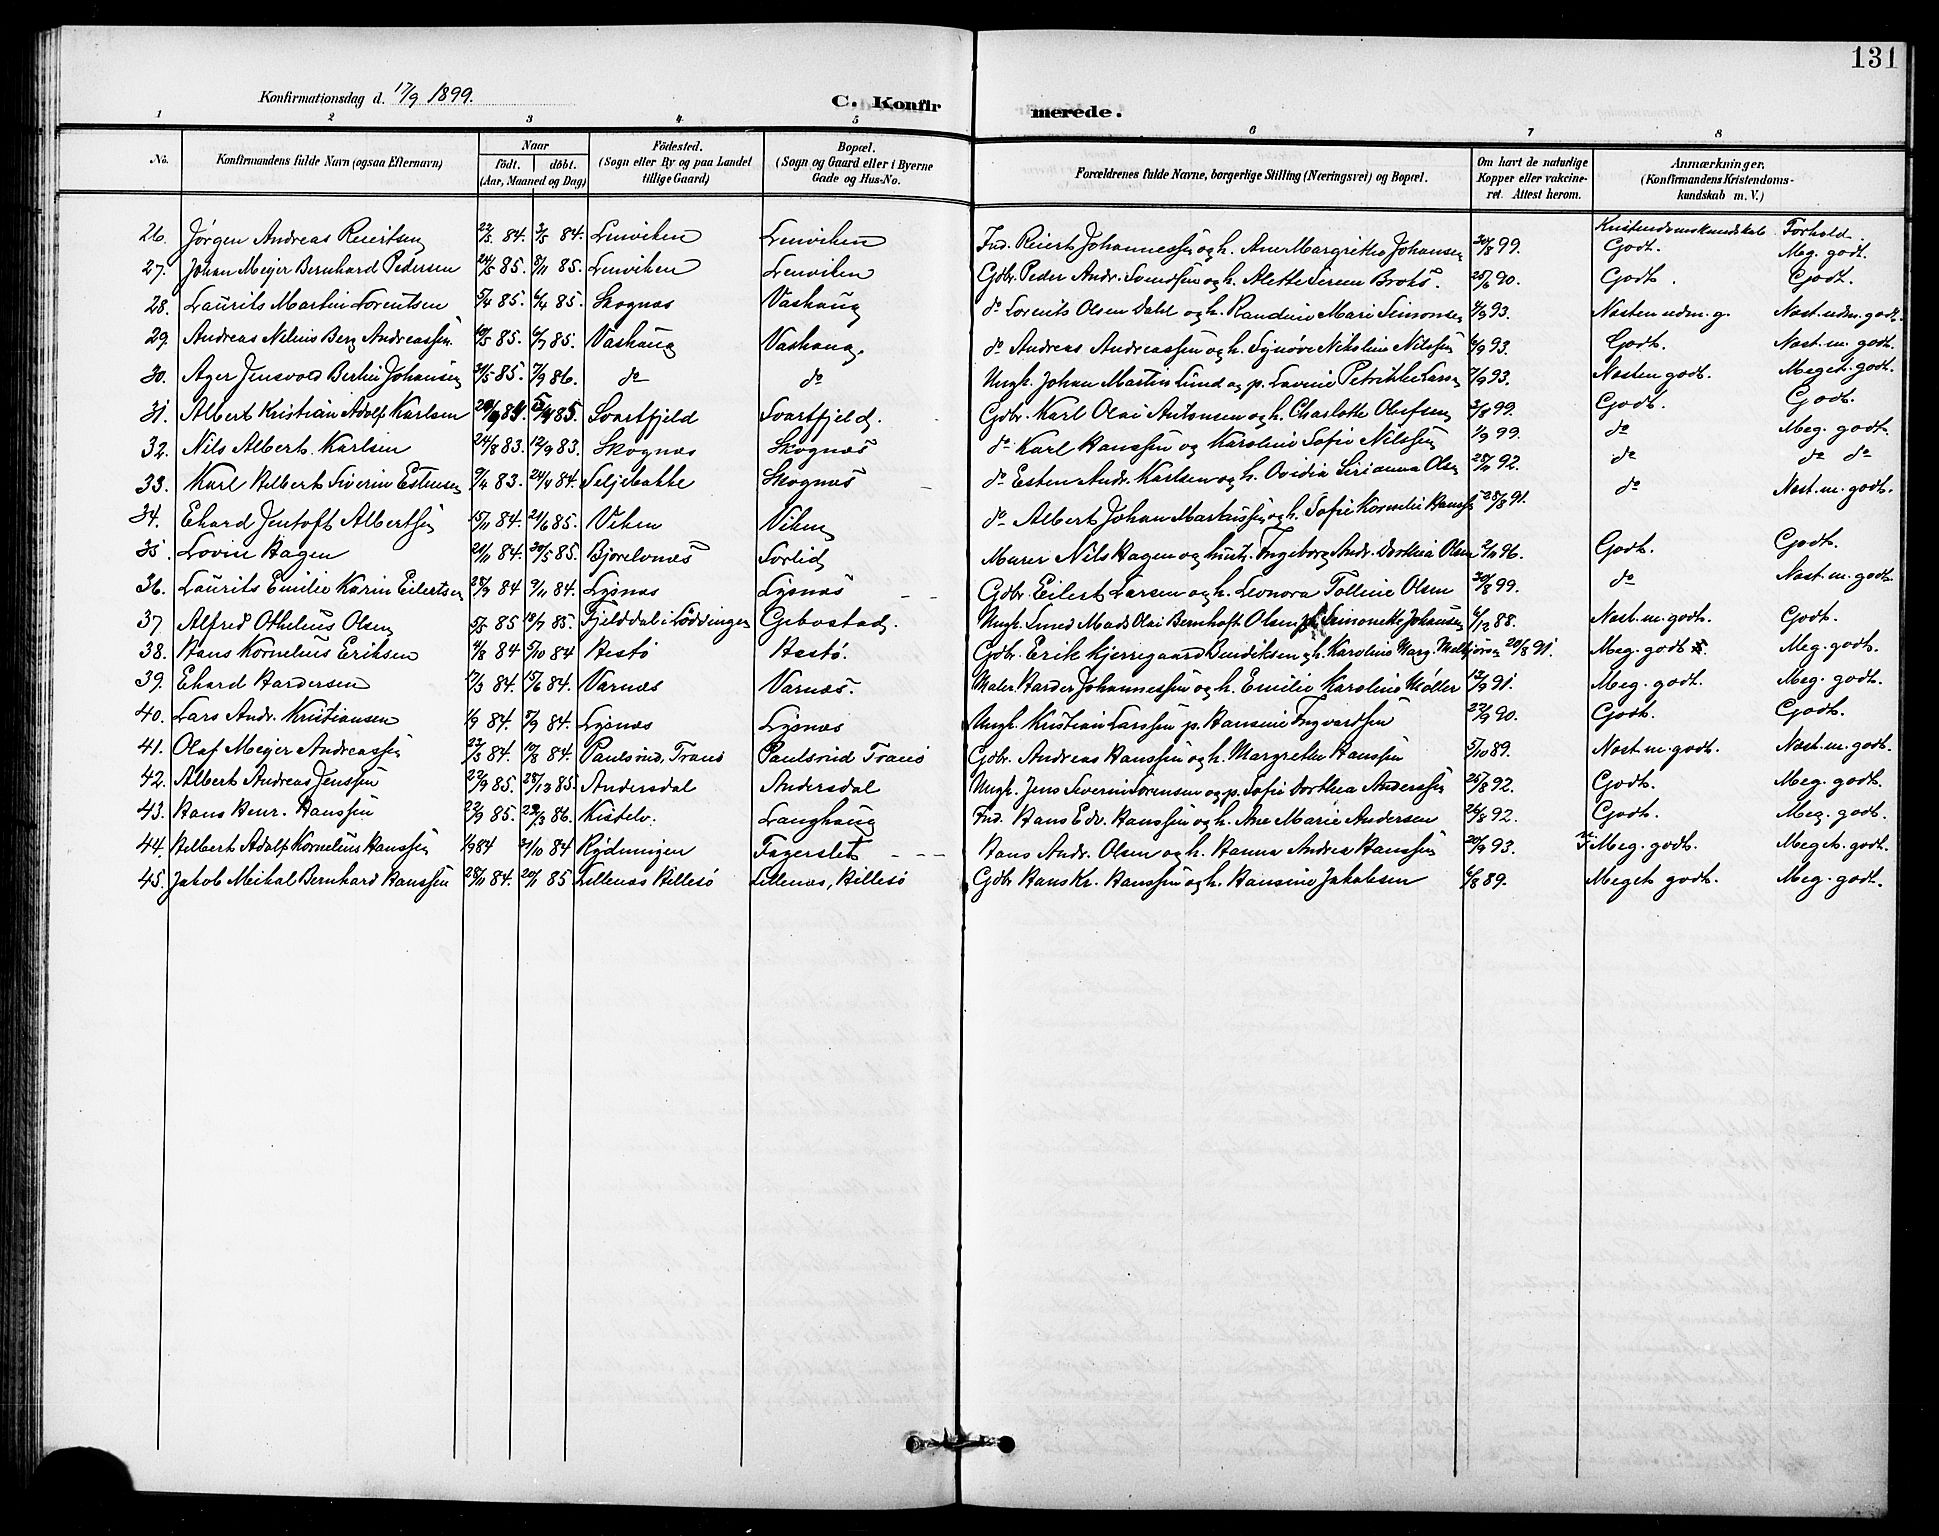 131
Konfirmationsdag d. 17/9 1899.
C. Konfirmerede.
1 2 3 4 5 6 7 8
No. Konfirmandens fulde Navn (ogsaa Efternavn) Naar födt. döbt. (Aar, Maaned og Dag) Födested. (Sogn eller By og paa Landet tillige Gaard) Bopæl. (Sogn og Gaard eller i Byerne Gade og Hus-No. Forældrenes fulde Navne, borgerlige Stilling (Næringsvei) og Bopæl. Om havt de naturlige Kopper eller vakcineret. Attest herom. Anmærkninger. (Konfirmandens Kristendomskundskab m. V.)
Kristendomskundskab Forhold
26. Jørgen Andreas Reiertsen 22/5 84. 3/5 84. Lenviken Lenviken Ind. Reiert Johannessen og h. Ane Margrethe Johansen 30/8 99. Godt. Meg. godt.
27. Johan Meyer Bernhard Pedersen 24/5 85. 8/11 85. Lenviken Lenviken Gdbr. Peder Andr. Svendsen og h. Alette Serene Broks. 25/6 90. Godt. Godt.
28. Laurits Martin Lorentsen 5/4 85. 6/4 85. Skognæs Vashaug do Lorents Olsen Dahl og h. Randine Marie Simonsen 4/9 93. Næsten udm. g. Næst. udm. godt.
29. Andreas Nelius Berg Andreassen. 10/5 85. 6/7 85. Vashaug Vashaug. do Andreas Andreassen og h. Synøve Nikoline Nilssen 6/9 93. Godt. Næst. m. godt.
30. Ager Jensvold Berlin Johansen 31/5 85. 7/9 86. do do Ungk. Johan Martin Lund og p. Lavine Petrikke Larsen 7/9 93. Næsten godt. Meget godt.
31. Albert Kristian Adolf Karlsen 85. Svartfjeld Svartfjeld. Gdbr. Karl Olai Antonsen og h. Charlotte Olufsen 31/8 99. Godt. Godt.
32. Nils Albert Karlsen 24/8 83. 12/9 83. Skognæs Skognæs do Karl Hanssen og Karoline Sofie Nilssen 1/9 99. do Meg. godt.
33. Karl Hilbert Siverin Estensen 9/4 83. 24/4 84. Seljebakke Skognæs do Esten Andr. Karlsen og h. Ovidia Serianna Olsen 28/11 92. do do do
34. Ehard Jentoft Albertsen 15/11 84. 21/6 85. Viken Viken do Albert Johan Markussen og h. Sofie Kornelie Hanssen 28/8 91. do Næst. m. godt.
35. Lovise Hagen 21/11 84. 30/5 85. Bjorelvnæs Sørlid Murer Nils Hagen og hust. Ingeborg Andr. Dorthea Olsen 2/10 96. Godt. Godt.
36. Laurits Emilie Karin Eilertsen 28/9 84 9/11 84. Lysnæs Lysnæs Gdbr. Eilert Larsen og h. Leonora Tolline Olsen 30/8 99. do Næst. m. godt.
37. Alfred Othelius Olsen 5/5 85 12/7 85. Fjelddal i Lödingen Gibostad. Ungk. Smed Mads Olai Bernhoft Olsen p. Simonette Johansen 6/12 88. Næst. m. godt. Godt.
38. Hans Kornelius Eriksen 4/8 84 5/10 84 Hestö Hestö. Gdbr. Erik Kjerregaard Bendiksen og h. Karoline Marg. 20/8 91. Meg. godt. Meg. godt.
39. Ehard Hardersen 17/3 84. 15/6 84. Varnæs Varnæs. Maler. Harder Johannessen og h. Emilie Karoline Møller 12/9 91. Meg. godt. Meg. godt.
40. Lars Andr. Kristiansen 1/9 84. 7/9 84. Lysnæs Lysnæs Ungk. Kristian Larssen p. Hansine Ingvardsen 22/9 90. Godt. Godt.
41. Olaf Meyer Andreassen 22/3 84. 17/8 84. Paulsrud, Tranö Paulsrud Tranö Gdbr. Andreas Hanssen og h. Margrethe Hanssen 5/10 89. Næst. m. godt. Næst. m. godt.
42. Albert Andreas Jenssen 22/9 85. 28/12 85. Andersdal Andersdal Ungk. Jens Severin Sørensen og p. Sofie Dorthea Anderssen 25/8 92. Godt. Meg. godt.
43. Hans Henr. Hanssen 22/9 85. 29/3 86. Kistelv. Langhaug Ind. Hans Edv. Hanssen og h. Ane Marie Andersen 26/8 92. Godt. Meg. godt.
44. Hilbert Adolf Kornelius Hanssen 1/9 84 21/10 84 Rydningen Fagerslet Hans Andr. Olsen og h. Hanna Andrea Hanssen 20/9 93. Meg. godt. Meget godt.
45. Jakob Mikal Bernhard Hanssen 28/11 84. 20/1 85 Lillenæs Hillesö Lillenæs, Hillesö Gdbr. Hans Kr. Hanssen og h. Hansine Jakobsen 6/8 89. Meget godt. Meg. godt.